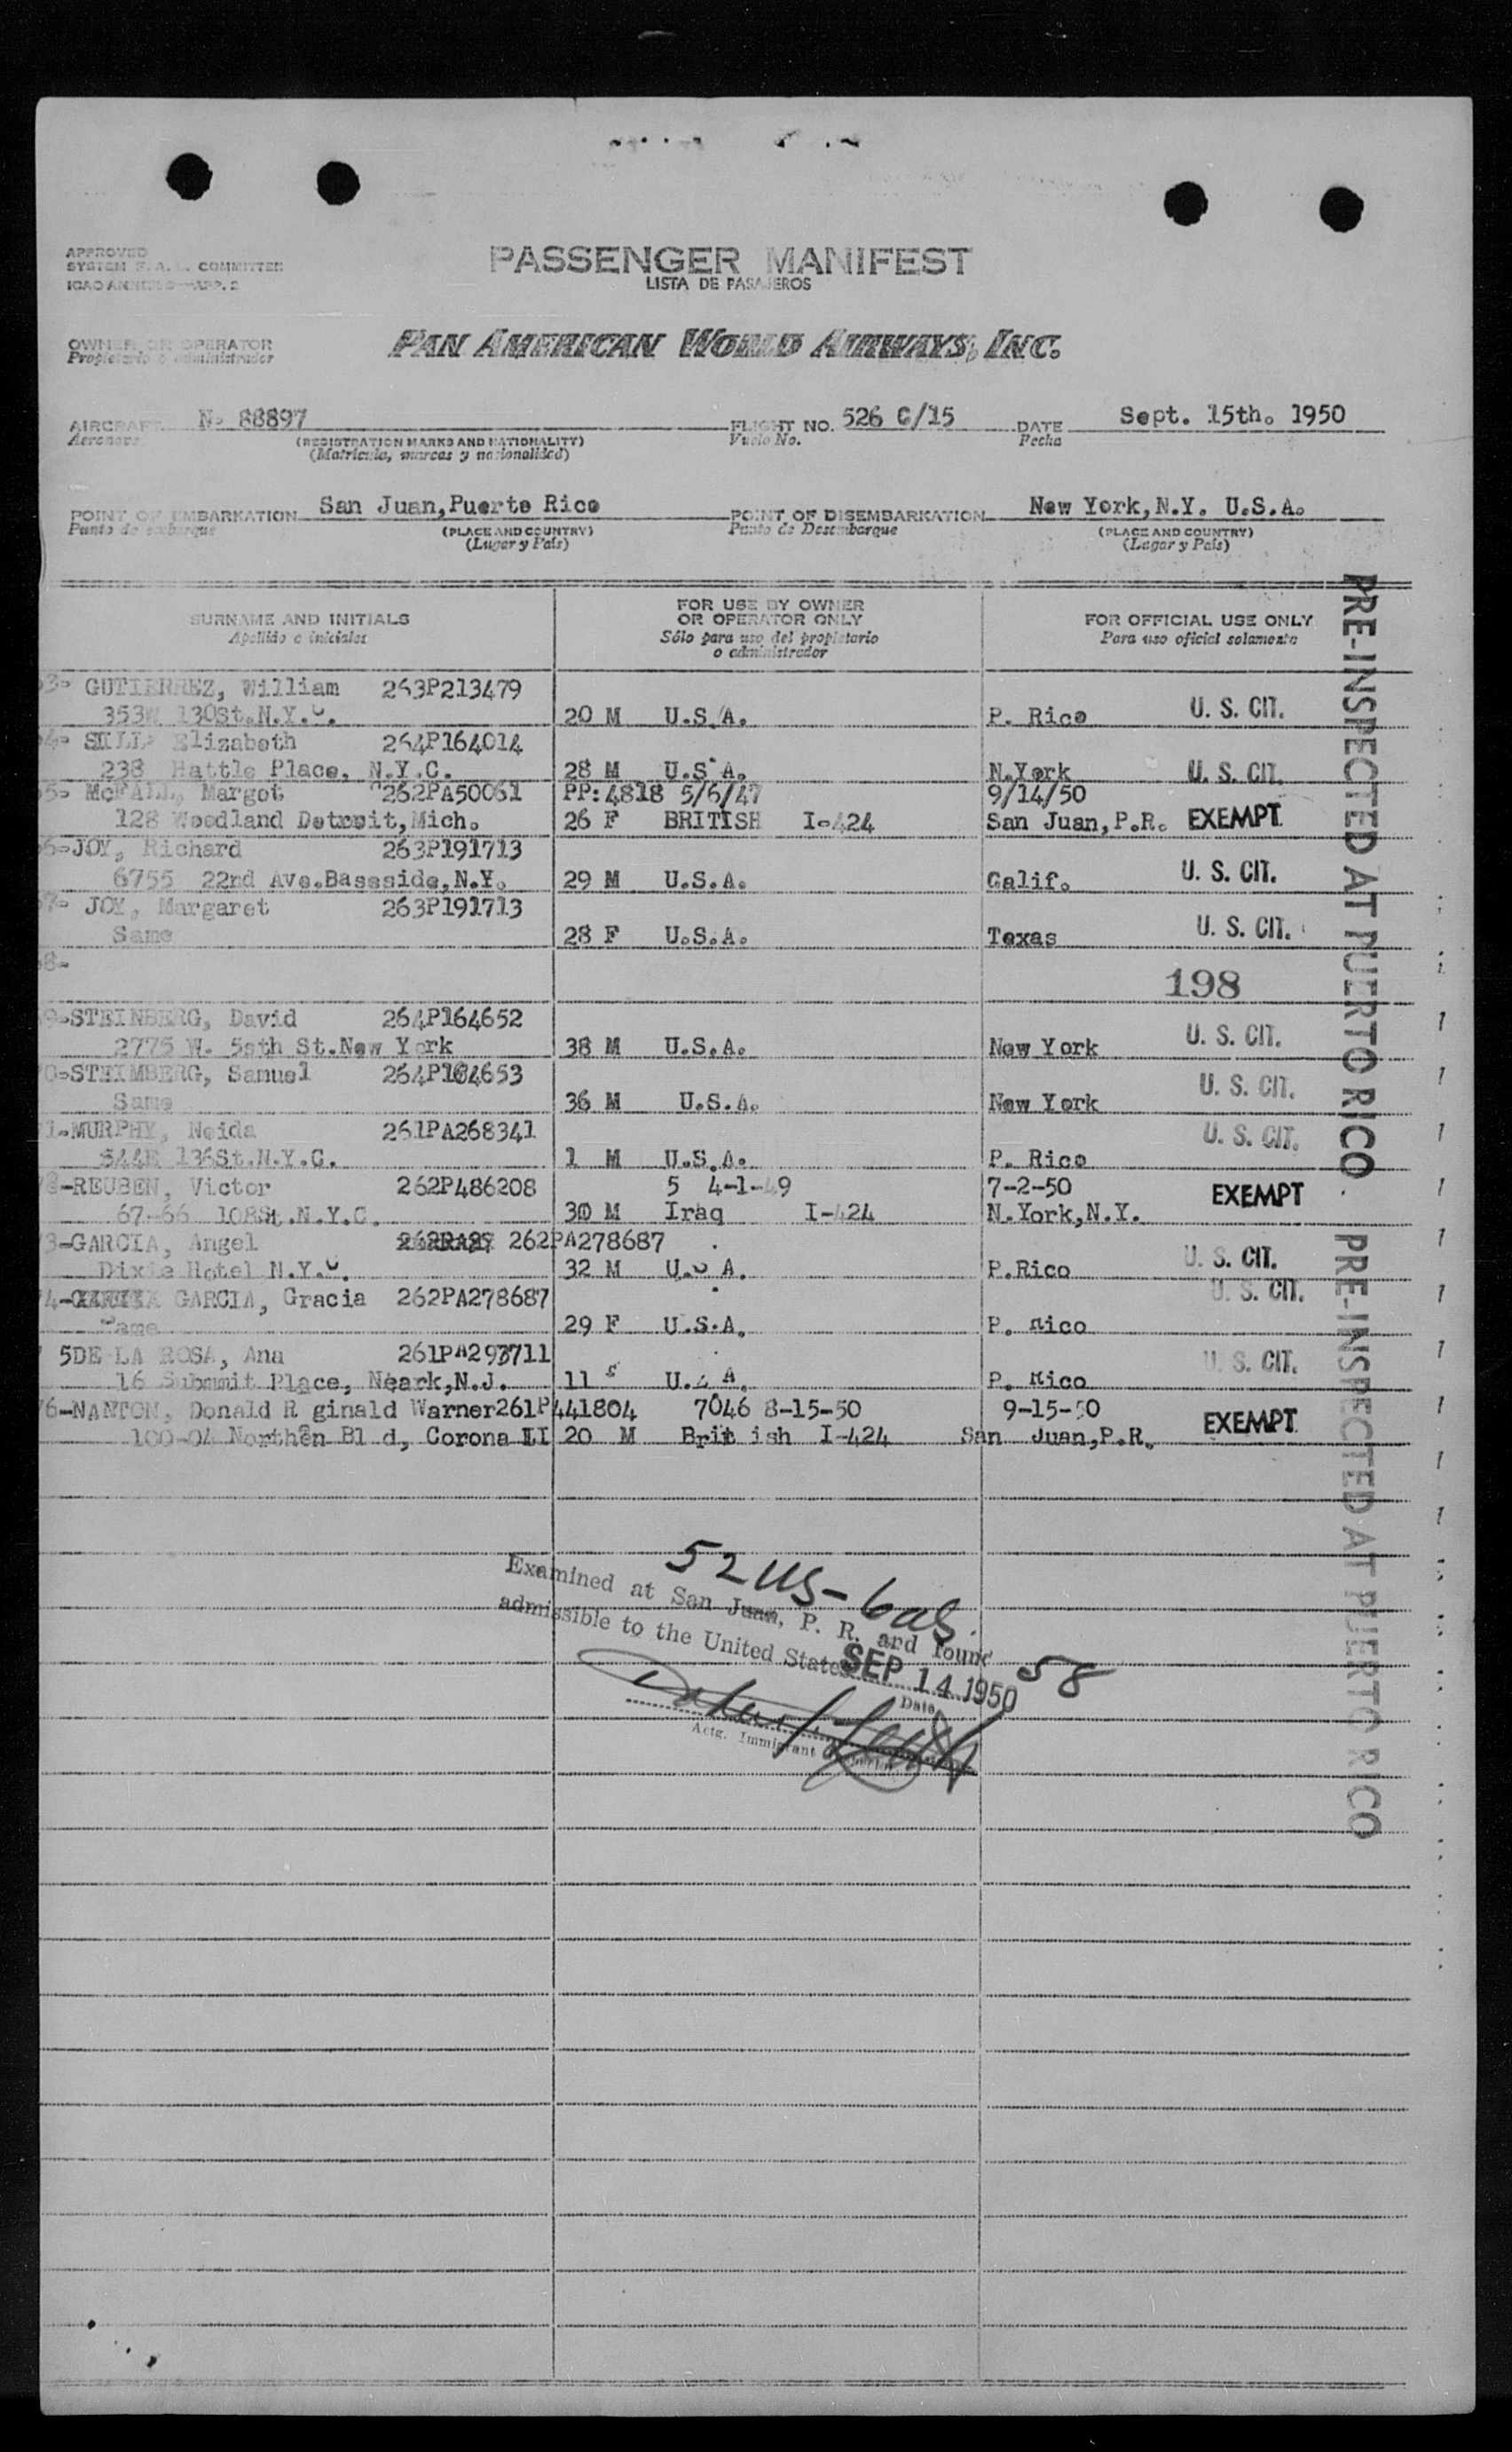 APPROVED
SYSTEM F. A. L. COMMITTEE
ICAO ANNEX 9—APP. 2
PASSENGER MANIFEST
LISTA DE PASAJEROS
OWNER OR OPERATOR
Propietario o administrador
PAN AMERICAN WORLD AIRWAYS, INC.
AIRCRAFT N- 88897 FLIGHT NO. 526 C/15 DATE Sept. 15th. 1950
Aeronave (REGISTRATION MARKS AND NATIONALITY) Vuelo No. Fecha
(Matrícula, marcas y nacionalidad)
POINT OF EMBARKATION San Juan,Puerto Rico POINT OF DISEMBARKATION New York,N.Y. U.S.A.
Punto de embarque (PLACE AND COUNTRY) Punto de Desembarque (PLACE AND COUNTRY)
(Lugar y País) (Lugar y País)
SURNAME AND INITIALS
Apellido e iniciales
FOR USE BY OWNER
OR OPERATOR ONLY
Sólo para uso del propietario
o administrador
FOR OFFICIAL USE ONLY
Para uso oficial solamente
3- GUTIERREZ, William 263P213479
353W 130St.N.Y.C. 20 M U.S.A. P. Rico U. S. CIT.
4- Elizabeth 264P164014
238 Hattle Place, N.Y.C. 28 M U.S.A. N.York U. S. CIT.
5- McFALL, Margot 262PA50061 PP:4818 5/6/47 9/14/50
128 Woodland Detroit,Mich. 26 F BRITISH I-424 San Juan,P.R. EXEMPT
6-JOY, Richard 263P191713
6755 22nd Ave.Bassside,N.Y. 29 M U.S.A. Calif. U. S. CIT.
7- JOY, Margaret 263P191713
Same 28 F U.S.A. Texas U. S. CIT.
8-
198
9-STEINBERG, David 264P164652
2775 W. 5sth St.New York 38 M U.S.A. New York U. S. CIT.
0-STEIMBERG, Samuel 264P164653
Same 36 M U.S.A. New York U. S. CIT.
1-MURPHY, Neida 261PA268341 U. S. CIT.
544E 136St.N.Y.C. 1 M U.S.A. P. Rico
2-REUBEN, Victor 262P486208 5 4-1-49 7-2-50 EXEMPT
67-66 108St.N.Y.C. 30 M Iraq I-424 N.York,N.Y.
3-GARCIA, Angel 262PA278687
Dixie Hotel N.Y.C. 32 M U.S A. P.Rico U. S. CIT.
4- GARCIA, Gracia 262PA278687 U. S. CIT.
Same 29 F U.S.A. P. Rico
5DE LA ROSA, Ana 261PA293711 U. S. CIT.
16 Submmit Place, Neark,N.J. 11 U.S A. P. Rico
6-NANTON, Donald R ginald Warner261P441804 7046 8-15-50 9-15-50 EXEMPT
100-04 Northen Bl d, Corona LI 20 M British I-424 San Juan,P.R.
PRE-INSPECTED AT PUERTO RICO
PRE-INSPECTED AT PUERTO RICO
52 US-6 als.
Examined at San Juan, P. R. and found
admissible to the United States SEP 14 1950 58
Date
Actg. Immigrant Inspector